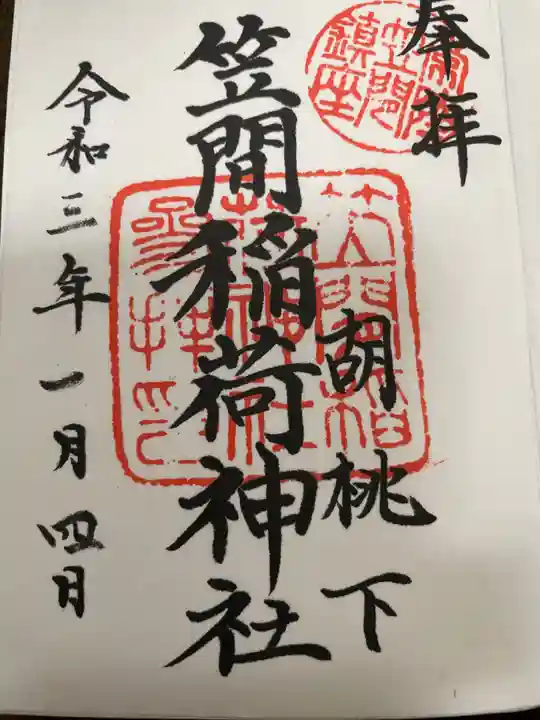 奉拝
胡桃下
笠間稲荷神社
令和三年一月四日
笠間
鎮座
笠間稲
荷神社
参拝印